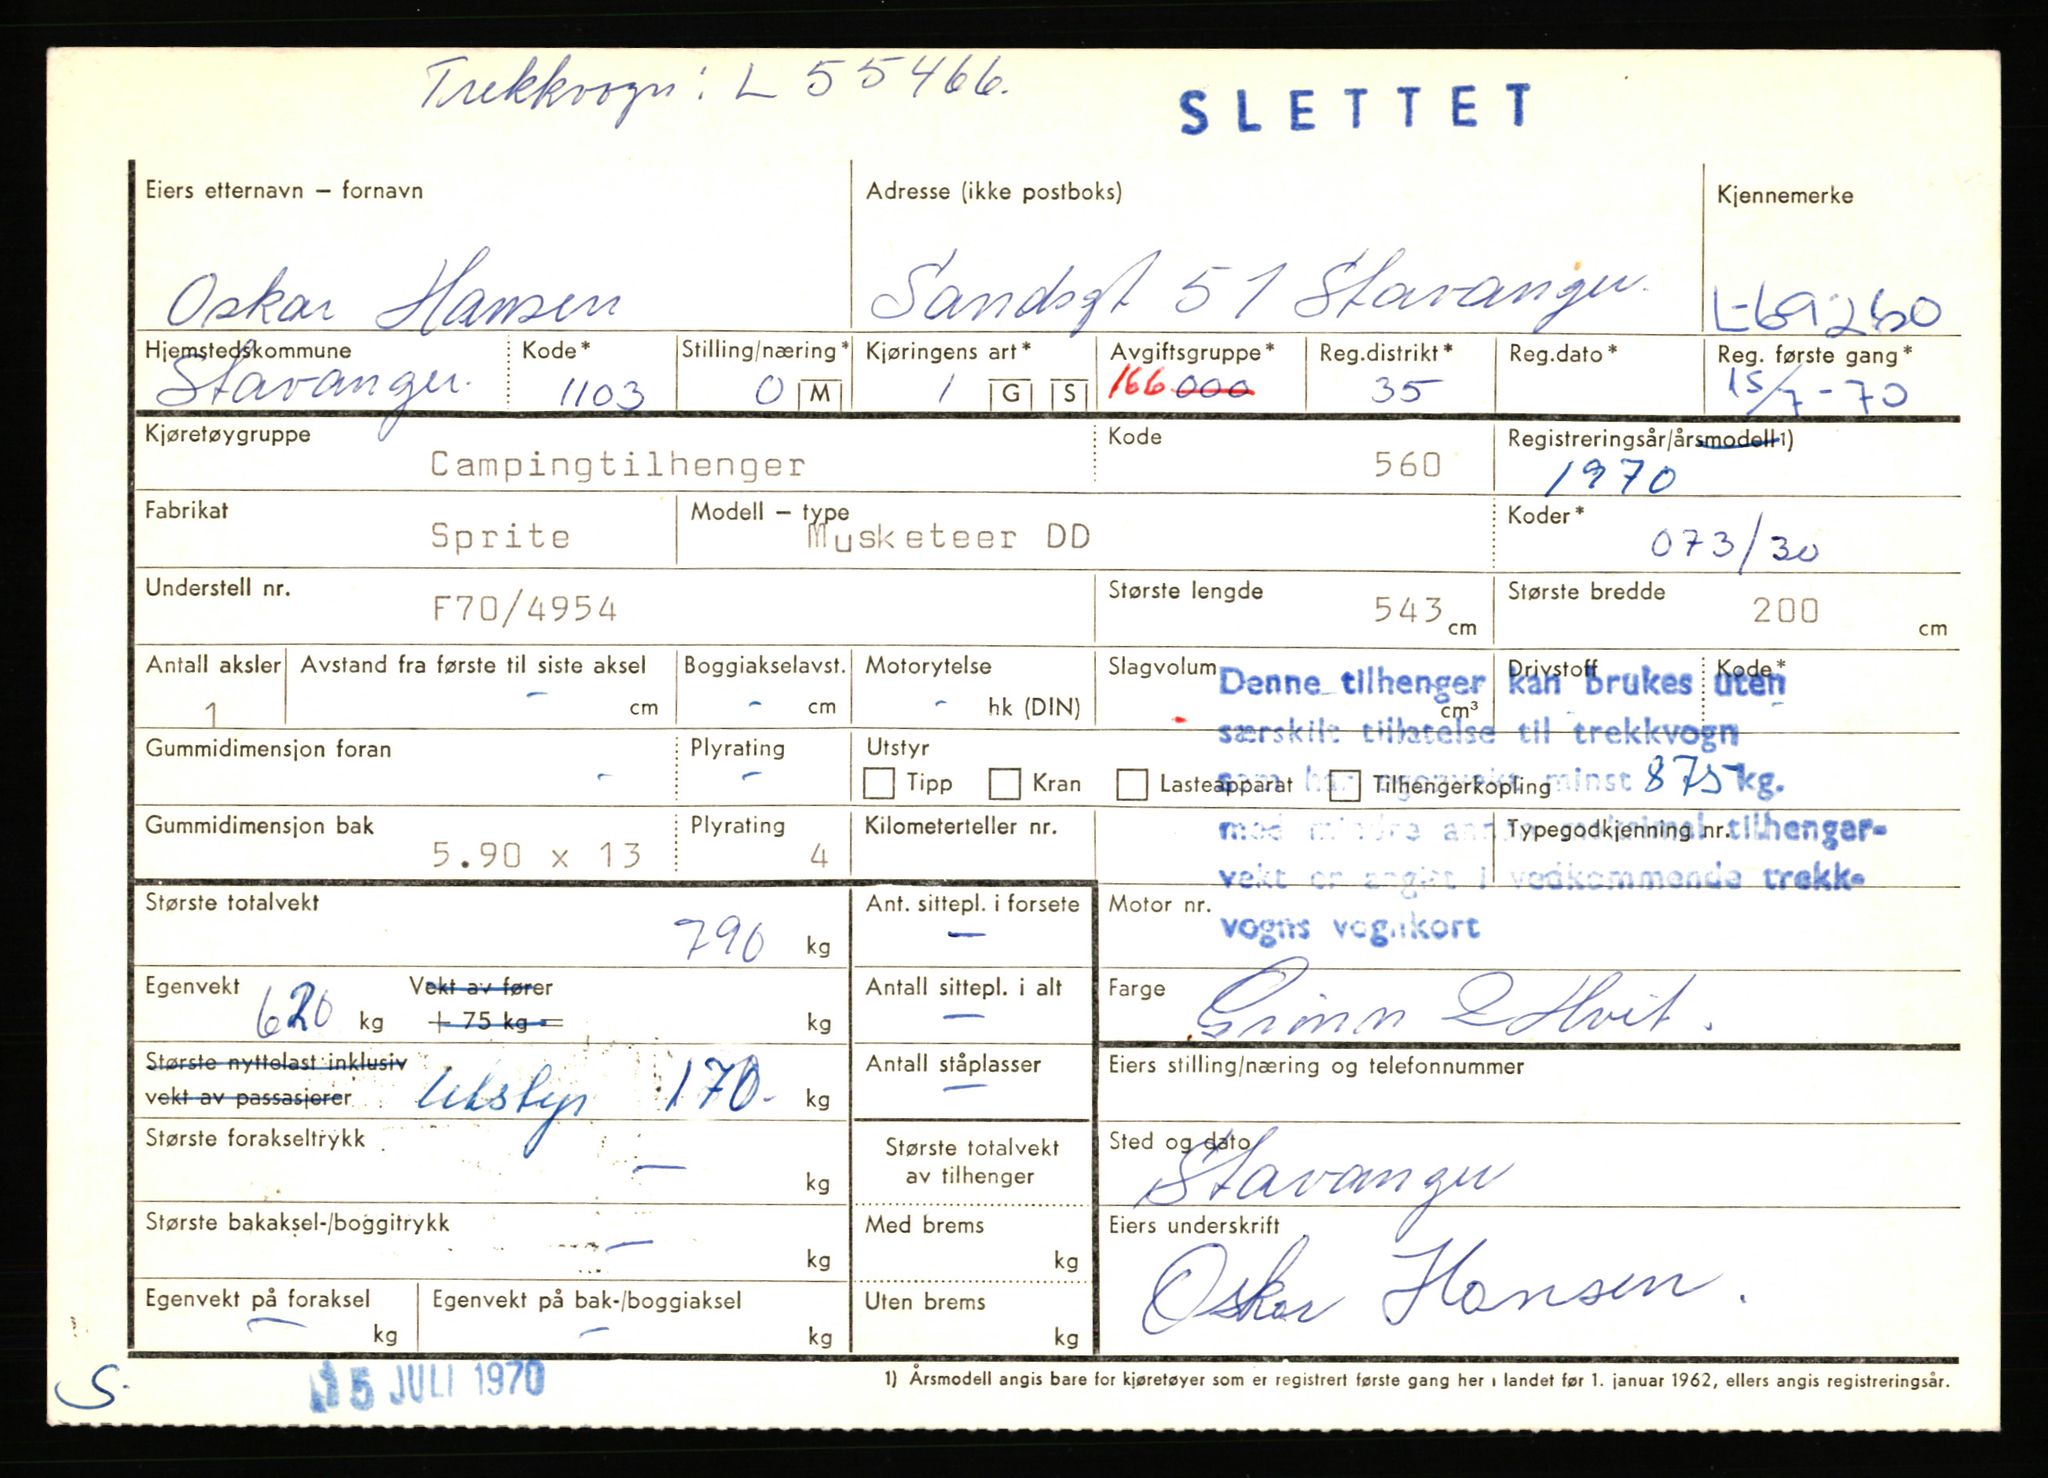 Trekkvogn: L 55466.
SLETTET
Eiers etternavn – fornavn
Adresse (ikke postboks)
Kjennemerke
Oskar Hansen
Sandsgt 51 Stavanger.
L-69260
Hjemstedskommune
Kode*
Stilling/næring*
Kjøringens art*
Avgiftsgruppe*
Reg.distrikt*
Reg.dato*
Reg. første gang*
Stavanger.
1103
0 M
1 G S
166 000
35
15/7-70
Kjøretøygruppe
Kode
Registreringsår/årsmodell 1)
Campingtilhenger
560
1970
Fabrikat
Modell – type
Koder*
Sprite
Musketeer DD
073/30
Understell nr.
Største lengde
Største bredde
F70/4954
543 cm
200 cm
Antall aksler
Avstand fra første til siste aksel
Boggiakselavst.
Motorytelse
Slagvolum
Drivstoff
Kode*
1
- cm
- cm
- hk (DIN)
cm³
Denne tilhenger kan brukes uten
særskilt tillatelse til trekkvogn
som har egenvekt minst 875 kg.
med mindre annen maksimal tilhenger-
vekt er angitt i vedkommende trekk-
vogns vognkort
Gummidimensjon foran
Plyrating
Utstyr
-
-
Tipp
Kran
Lasteapparat
Tilhengerkopling
Gummidimensjon bak
Plyrating
Kilometerteller nr.
Typegodkjenning nr.
5.90 x 13
4
Største totalvekt
Ant. sittepl. i forsete
Motor nr.
790 kg
—
Egenvekt
Vekt av fører
Antall sittepl. i alt
Farge
620 kg
+ 75 kg =
kg
—
Grønn & Hvit.
Største nyttelast inklusiv
vekt av passasjerer
Utstyr 170- kg
Antall ståplasser
—
Eiers stilling/næring og telefonnummer
Største forakseltrykk
— kg
Største totalvekt
av tilhenger
Sted og dato
Stavanger
Største bakaksel-/boggitrykk
— kg
Med brems
kg
Eiers underskrift
Oskar Hansen.
Egenvekt på foraksel
Egenvekt på bak-/boggiaksel
Uten brems
— kg
— kg
kg
S.
15 JULI 1970
1) Årsmodell angis bare for kjøretøyer som er registrert første gang her i landet før 1. januar 1962, ellers angis registreringsår.